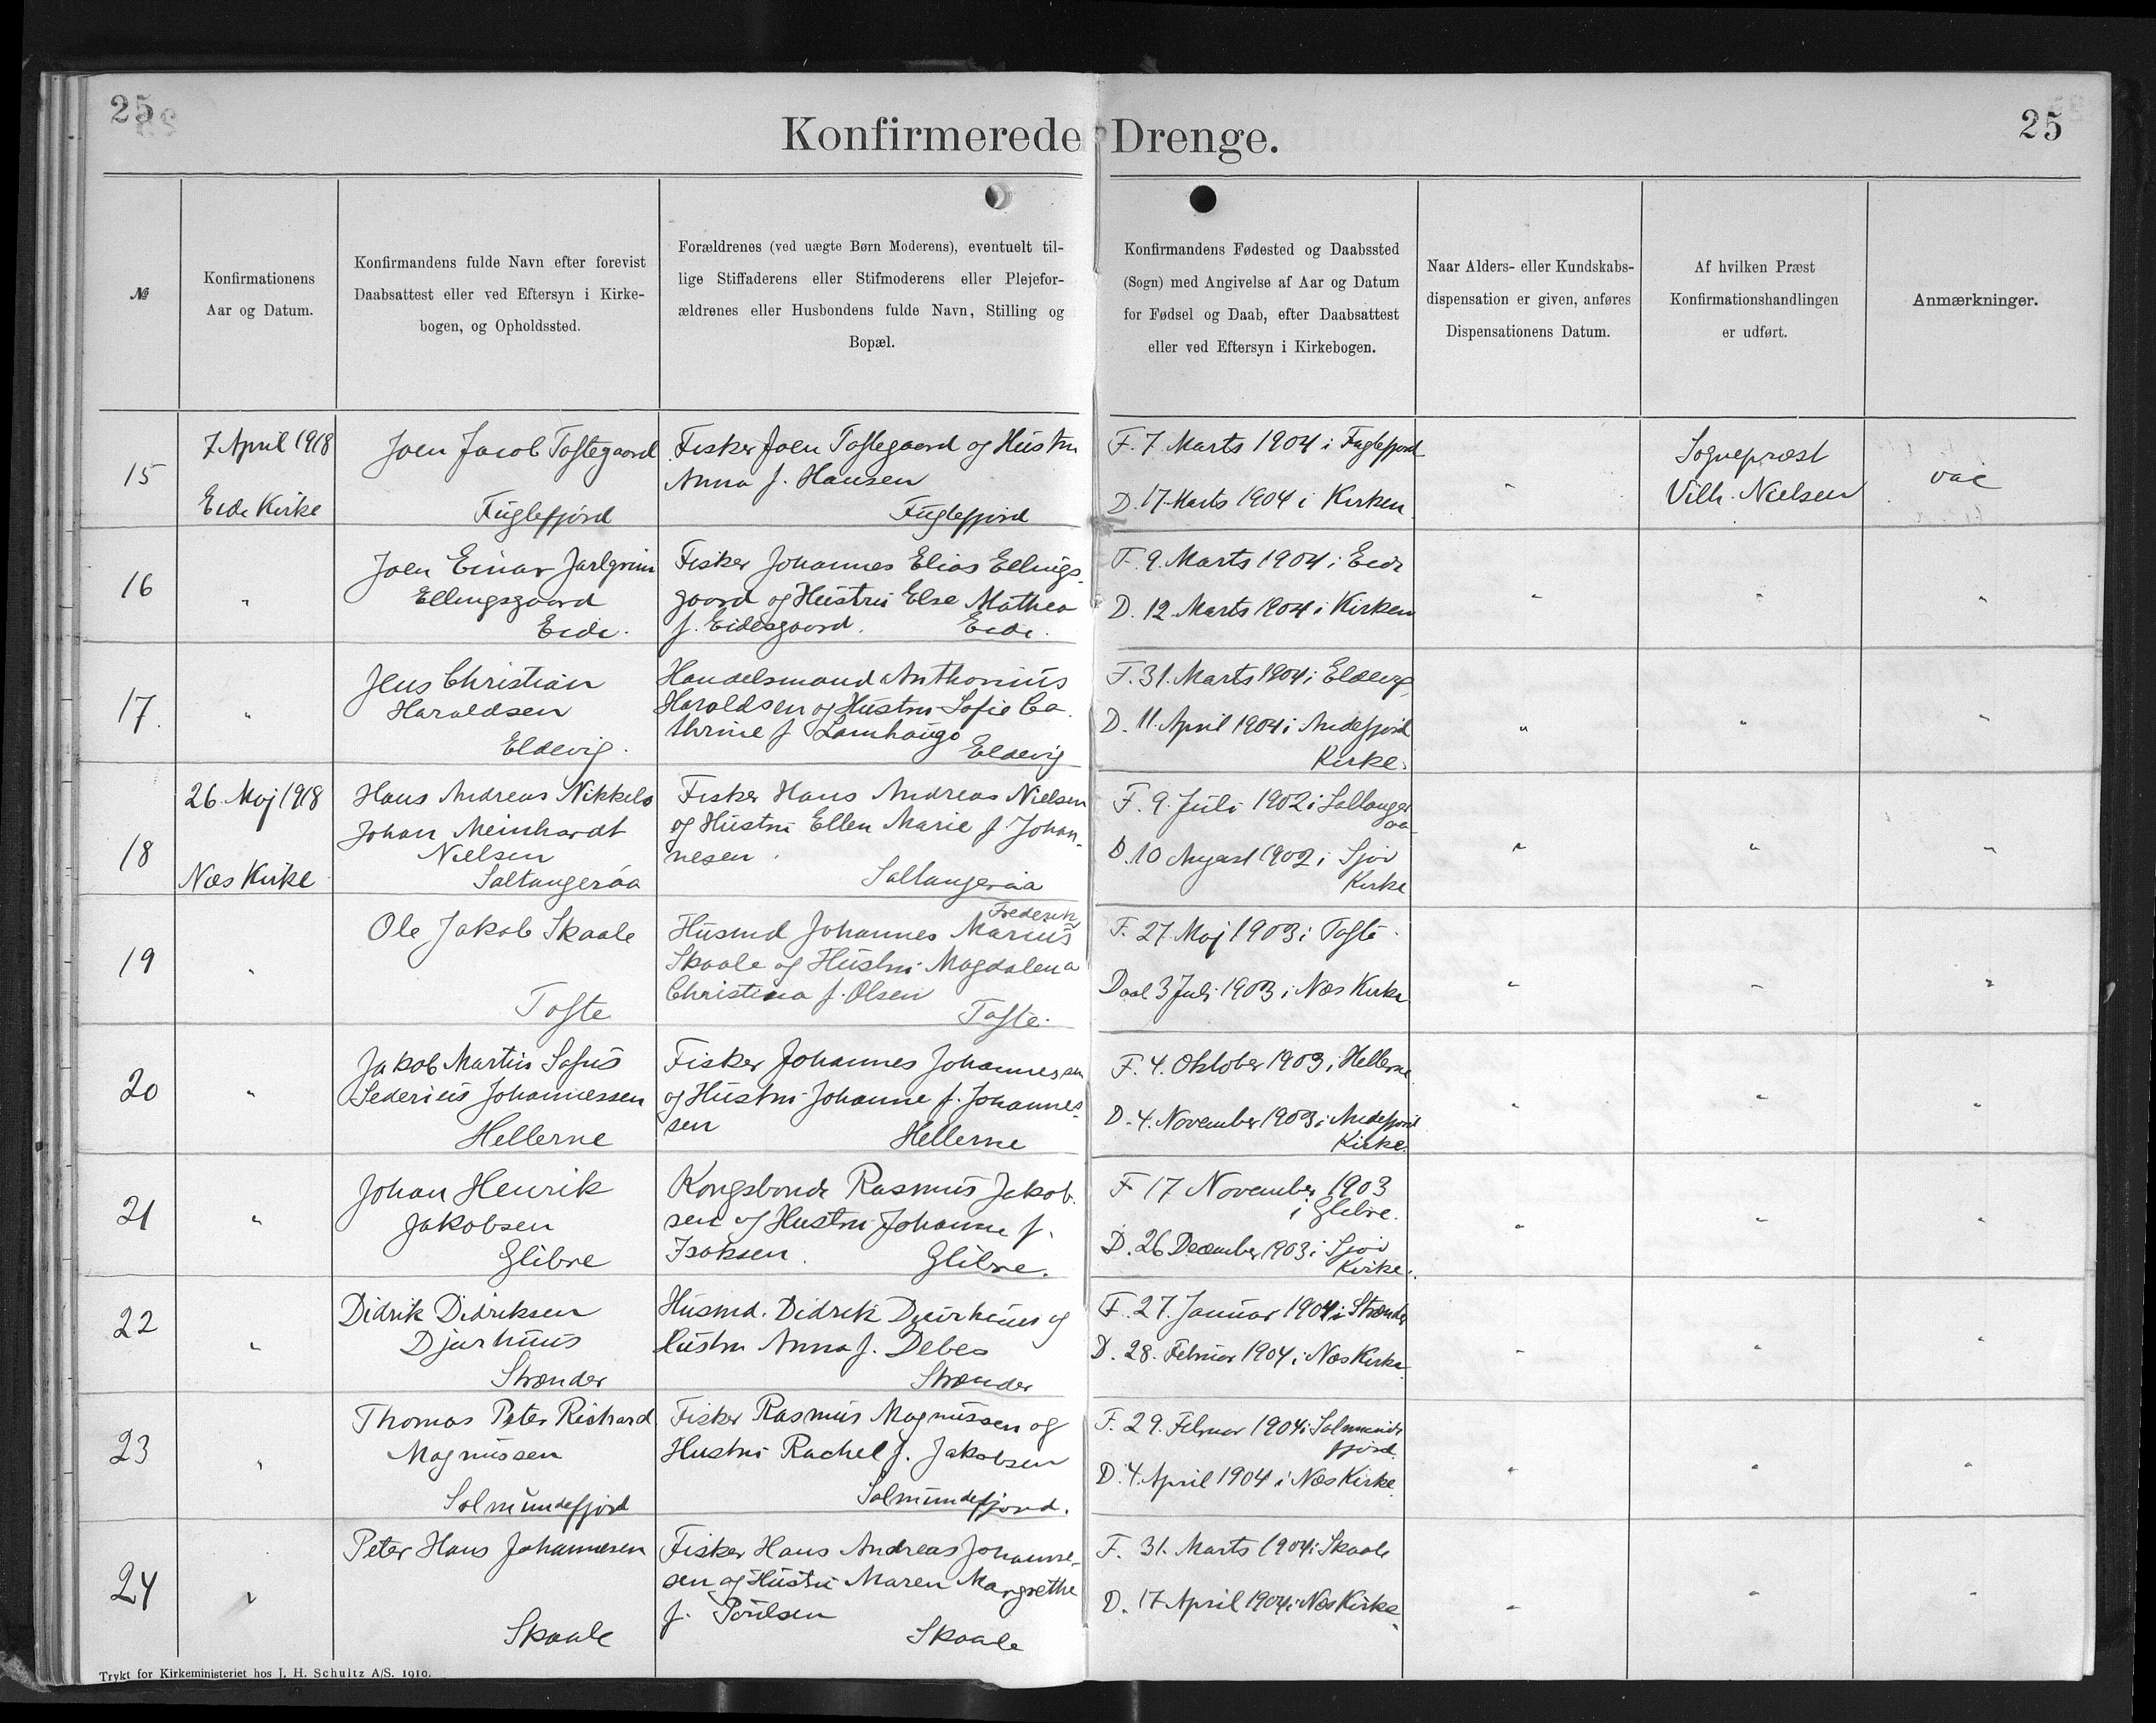 25
25
Konfirmerede Drenge.
№
Konfirmationens
Aar og Datum.
Konfirmandens fulde Navn efter forevist
Daabsattest eller ved Eftersyn i Kirke-
bogen, og Opholdssted.
Forældrenes (ved uægte Børn Moderens), eventuelt til-
lige Stiffaderens eller Stifmoderens eller Plejefor-
ældrenes eller Husbondens fulde Navn, Stilling og
Bopæl.
Konfirmandens Fødested og Daabssted
(Sogn) med Angivelse af Aar og Datum
for Fødsel og Daab, efter Daabsattest
eller ved Eftersyn i Kirkebogen.
Naar Alders- eller Kundskabs-
dispensation er given, anføres
Dispensationens Datum.
Af hvilken Præst
Konfirmationshandlingen
er udført.
Anmærkninger.
15
7 April 1918
Eide Kirke
Joen Jacob Toftegaard
Fuglefjord
Fisker Joen Toftegaard og Hustru
Anna f. Hansen
Fuglefjord
F. 7 Marts 1904 i Fuglefjord
D. 17 Marts 1904 i Kirken
"
Sognepræst
Vilh. Nielsen
vac
16
"
Joen Einar Jarlgrim
Ellingsgaard
Eide.
Fisker Johannes Elias Ellings-
gaard og Hustru Else Mathea
f. Eidesgaard. Eide.
F. 9. Marts 1904 i Eide
D. 12 Marts 1904 i Kirken
" " "
17.
"
Jens Christian
Haraldsen
Eldevig.
Handelsmand Anthonius
Haraldsen og Hustru Sofie Ca-
thrine f Lamhauge
Eldevig
F. 31. Marts 1904 i Eldevig
D. 11. April 1904 i Andefjord
Kirke.
" " "
18
26. Maj 1918
Næs Kirke
Hans Andreas Nikkels
Johan Meinhardt
Nielsen
Saltangeraa
Fisker Hans Andreas Nielsen
og Hustru Ellen Marie f. Johan-
nesen.
Saltangeraa
F. 9. Juli 1902 i Saltanger
aa
D. 10 August 1902 i Sjov
Kirke
" " "
19
"
Ole Jakob Skaale
Tofte
Frederik
Husmd Johannes Marius
Skaale og Hustru Magdalena
Christina f. Olsen
Tofte.
F. 27 Maj 1903 i Tofte.
Daab 3 Juli 1903 i Næs Kirke
" " "
20
"
Jakob Martin Sofus
Sederius Johannessen
Hellerne
Fisker Johannes Johannessen
og Hustru Johanne f. Johannes-
sen
Hellerne
F. 4. Oktober 1903 i Hellerne
D. 4. November 1903 i Andefjord
Kirke.
" " "
21
"
Johan Henrik
Jakobsen
Glibre
Kongsbonde Rasmus Jakob-
sen og Hustru Johanne f.
Isaksen.
Glibre.
F 17 November 1903
i Glibre.
D. 26 December 1903 i Sjov
Kirke.
" " "
22
"
Didrik Didriksen
Djurhuus
Strænder
Husmd. Didrik Djurhuus og
Hustru Anna f. Debes
Strænder
F. 27. Januar 1904 i Strænder
D. 28. Februar 1904 i Næs Kirke
" " "
23
"
Thomas Peter Richard
Magnussen
Solmundefjord
Fisker Rasmus Magnussen og
Hustru Rachel f. Jakobsen
Solmundefjord.
F. 29. Februar 1904 i Solmunde
fjord.
D. 4. April 1904 i Næs Kirke
" " "
24
"
Peter Hans Johannesen
Skaale
Fisker Hans Andreas Johanne-
sen og Hustru Maren Margrethe
f. Poulsen
Skaale
F. 31. Marts 1904 i Skaale
D. 17 April 1904 i Næs Kirke
" " "
Trykt for Kirkeministeriet hos J. H. Schultz A/S. 1910.